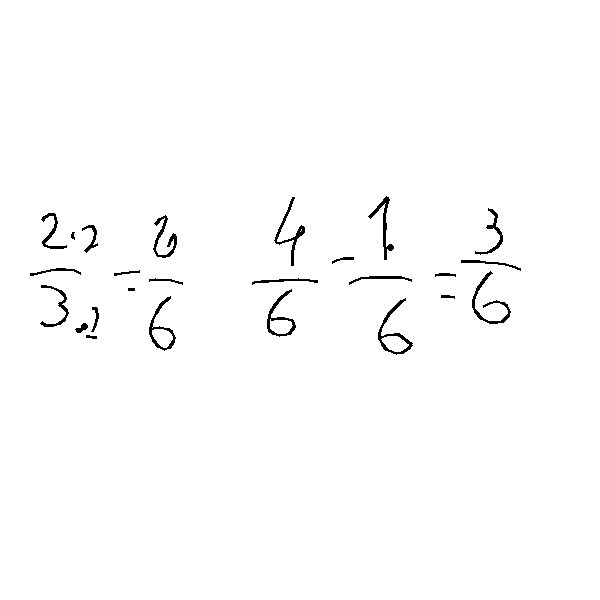 2·2/3·2 = 6/6  4/6 - 1/6 = 3/6